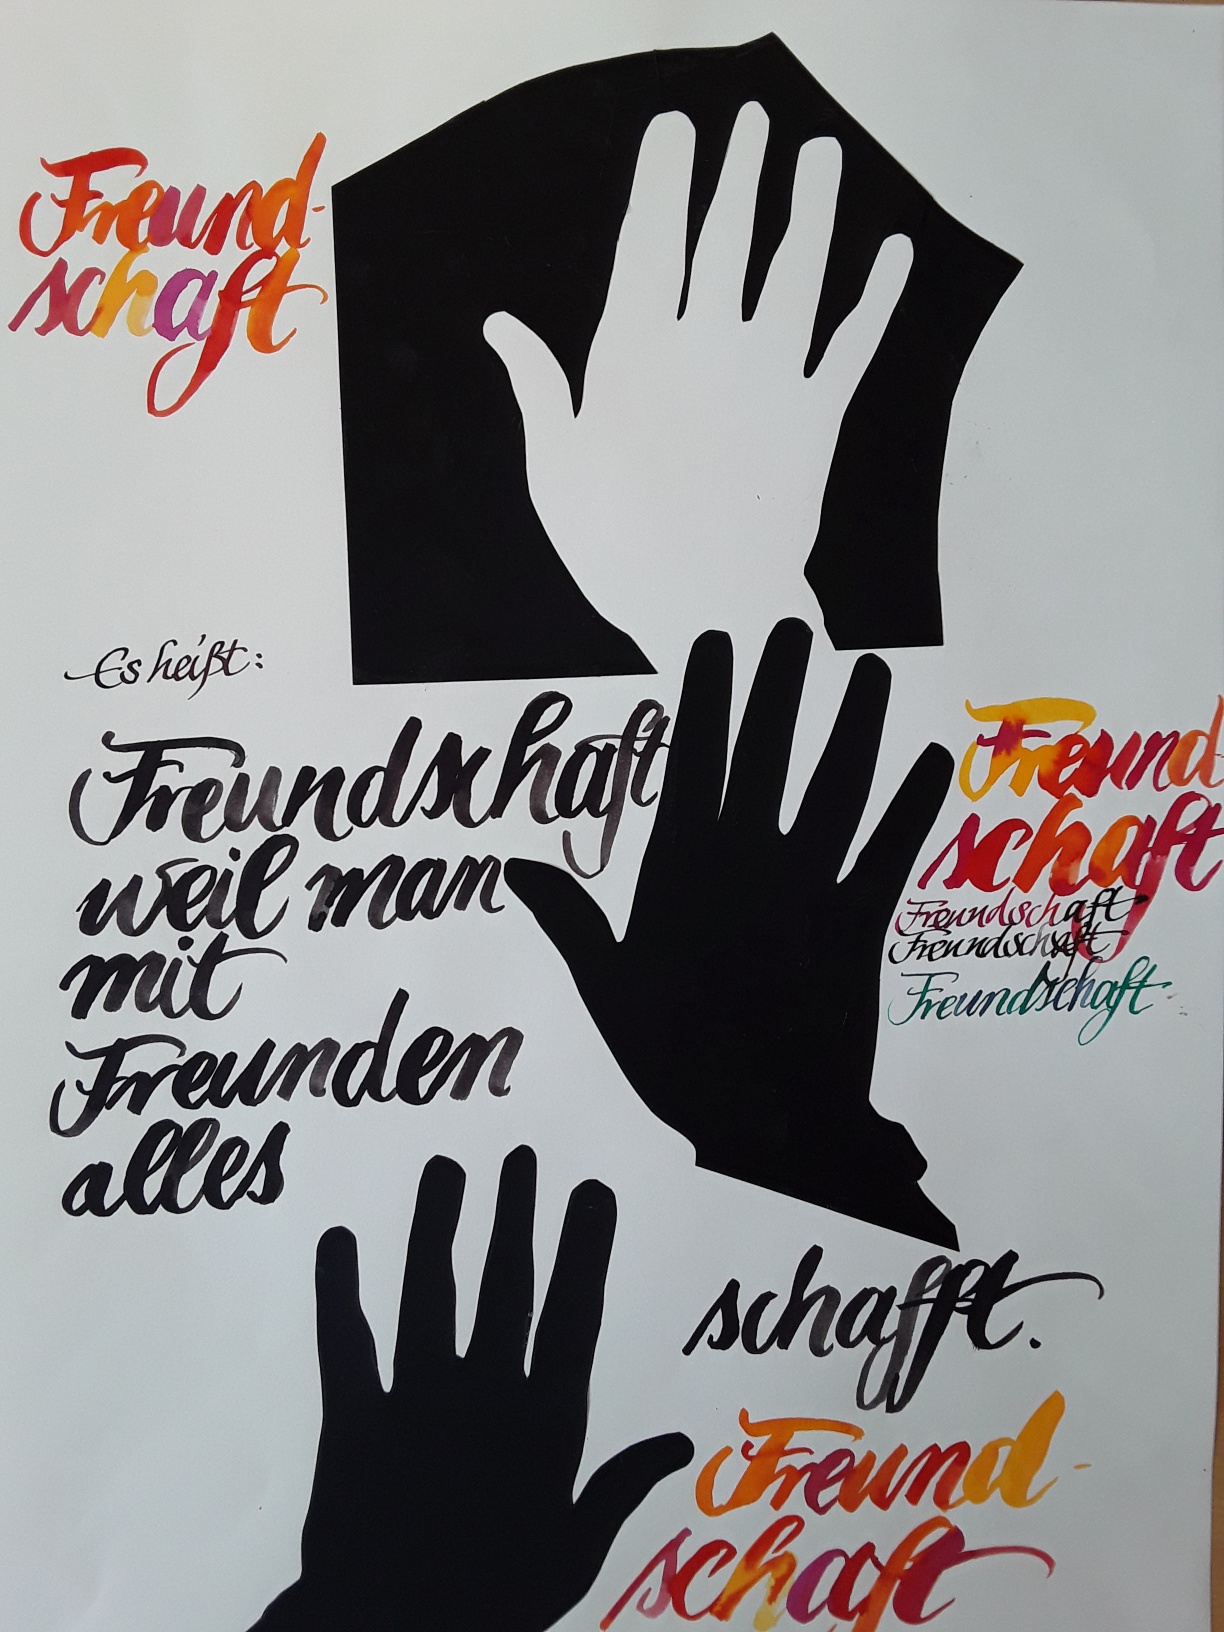 Freund-
schaft
Es heißt:
Freundschaft
weil man
mit
Freunden
alles
schafft.
Freund-
schaft
Freundschaft
Freundschaft
Freundschaft
Freund-
schaft